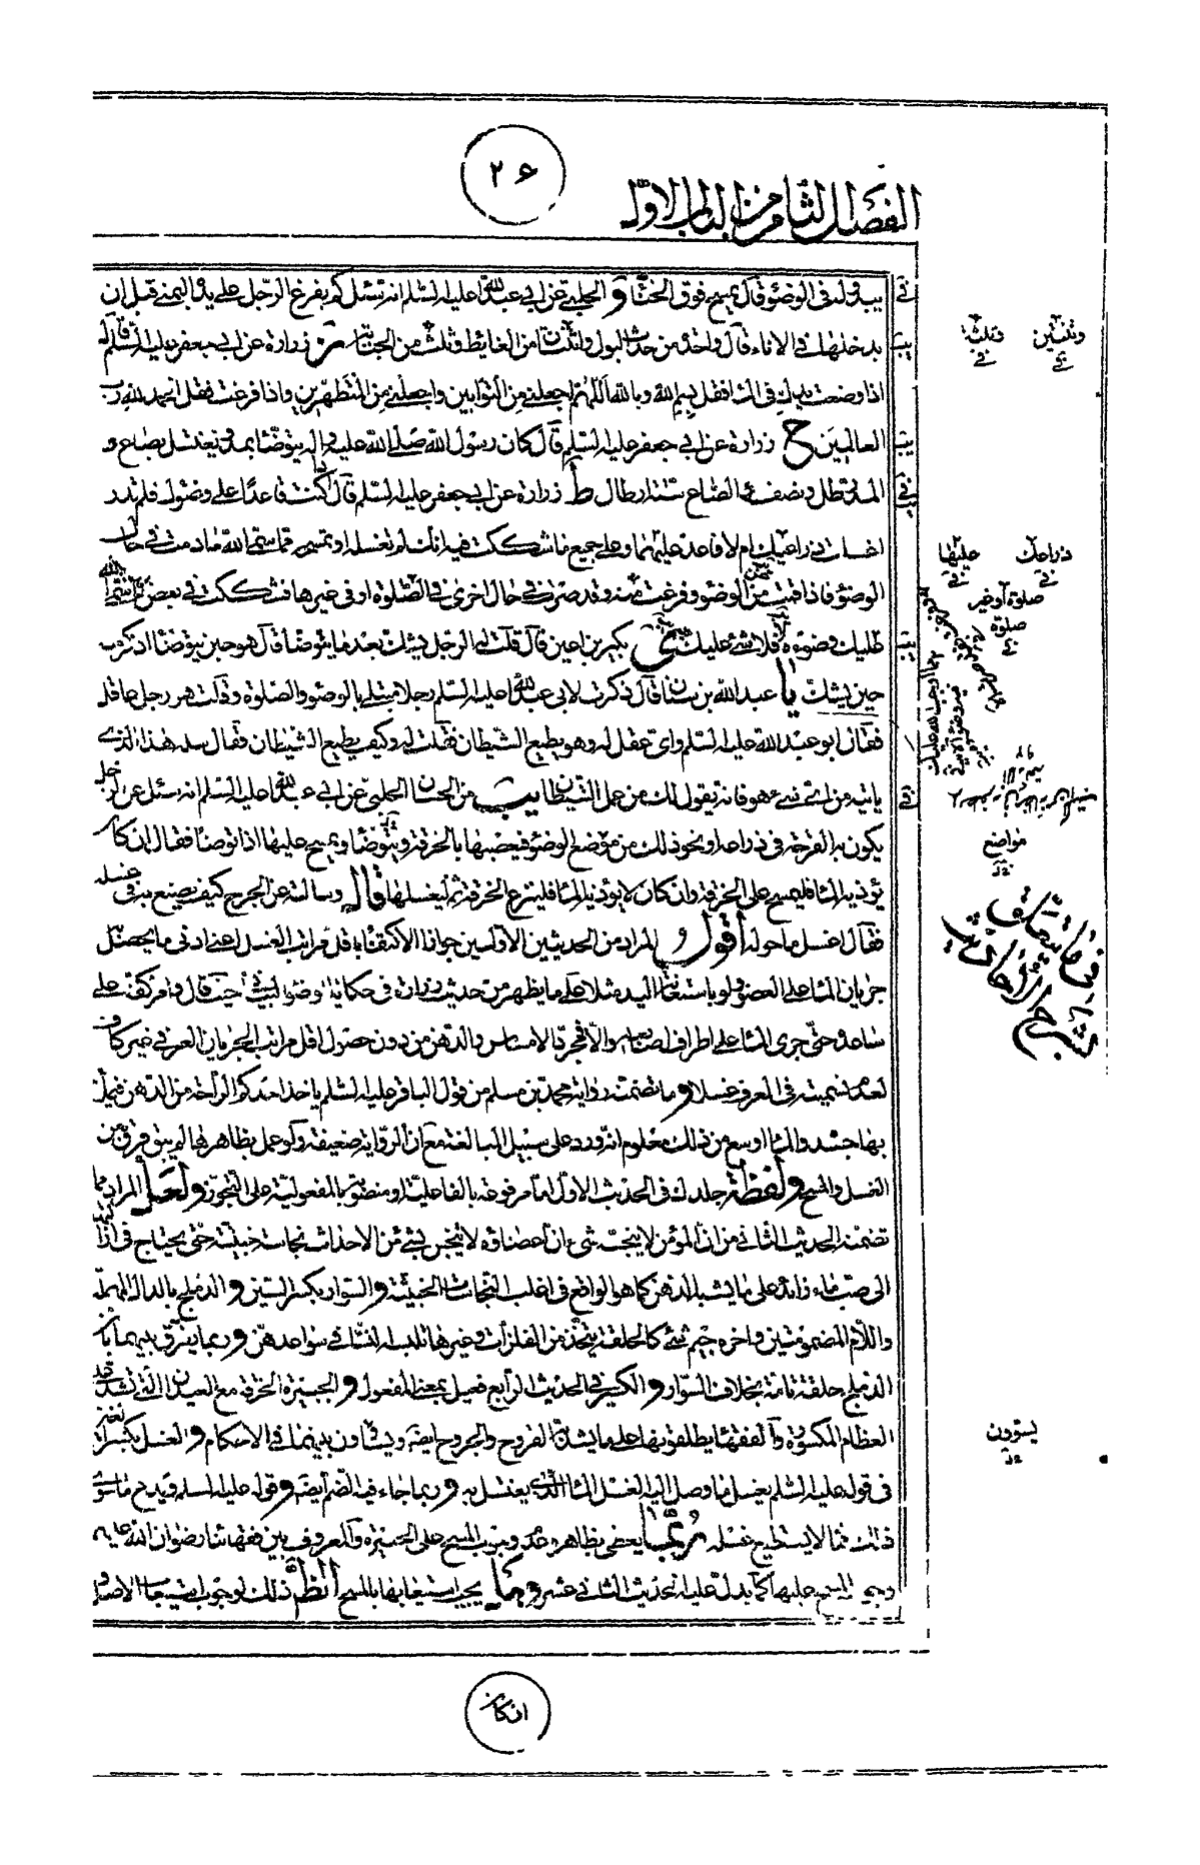 ٢۶
الفصل الثامن من الباب الاول
يبدو له فى الوضوء قال يمسح فوق الحناء و الحلبى عن ابى عبد الله عليه السلم انه سئل كم يفرغ الرجل على يده اليمنى قبل ان
يدخلها فى الاناء قال واحدة من حدث البول واثنتان من الغايط وثلث من الجنابة ز زرارة عن ابى جعفر عليه السلم قال
اذا وضعت يدك فى الماء فقل بسم الله وبالله اللهم اجعلنى من التوابين واجعلنى من المتطهرين واذا فرغت فقل الحمد لله رب
العالمين ح زرارة عن ابى جعفر عليه السلم قال كان رسول الله صلى الله عليه واله يتوضأ بمد ويغتسل بصاع و
المد رطل ونصف والصاع ستة ارطال ط زرارة عن ابى جعفر عليه السلم قال اذا كنت قاعدا على وضوئك فلم تدر
اغسلت ذراعيك ام لا فاعد عليهما وعلى جميع ما شككت فيه انك لم تغسله او تمسحه مما سمى الله ما دمت فى حال
الوضوء فاذا قمت من الوضوء وفرغت منه وقد صرت فى حال اخرى فى الصلوة او فى غيرها فشككت فى بعض ما سمى الله
عليك وضوءه فلا شئ عليك ى بكير بن اعين قال قلت له الرجل يشك بعد ما يتوضأ قال هو حين يتوضأ اذكر منه
حين يشك يا عبد الله بن سنان قال ذكرت لابى عبد الله عليه السلم رجلا مبتلى بالوضوء والصلوة وقلت هو رجل عاقل
فقال ابو عبد الله عليه السلم واى عقل له وهو يطيع الشيطان فقلت له وكيف يطيع الشيطان فقال سله هذا الذى
ياتيه من اى شئ هو فانه يقول لك من عمل الشيطان يب من الحسان الحلبى عن ابى عبد الله عليه السلم انه سئل عن الرجل
يكون به القرحة فى ذراعه او نحو ذلك من موضع الوضوء فيعصبها بالخرقة ويتوضأ ويمسح عليها اذا توضأ فقال ان كان
يؤذيه الماء فليمسح على الخرقة وان كان لا يؤذيه الماء فلينزع الخرقة ثم ليغسلها قال وسالته عن الجرح كيف يصنع به فى غسله
فقال اغسل ما حوله اقول المراد من الحديثين الاولين جواز الاكتفاء باقل مراتب الغسل اعنى ادنى ما يحصل
جريان الماء على العضو ولو باستعانة اليد مثلا على ما يظهر من حديث زرارة فى حكاية وضوء حيث قال وامر كفه على
ساعده حتى جرى الماء على اطراف اصابعه والا فمجرد الامساس والتدهن من دون حصول اقل مراتب الجريان العرفى غير كاف
لعدم تسميته فى العرف غسلا وما تضمنت رواية محمد بن مسلم من قول الباقر عليه السلم ياخذ احدكم الراحة من الدهن فيملأ
بها جسده والماء اوسع من ذلك معلوم انه ورد على سبيل المبالغة مع ان الرواية ضعيفة ولو عمل بظاهرها لم يبق فرق بين
الغسل والمسح ولفظة جلدك فى الحديث الاول اما مرفوعة بالفاعلية او منصوبة بالمفعولية على التجوز ولعل المراد بما
تضمنه الحديث الثانى من ان المؤمن لا ينجسه شئ ان اعضاءه لا ينجس بشئ من الاحداث نجاسة خبيثة حتى يحتاج فى ازالتها
الى صب ماء زائد على ما يشبه الدهن كما هو الواقع فى اغلب النجاسات الخبيثة والسوار بكسر السين والدملج بالدال المهملة
واللام المضمومتين واخره جيم شئ كالحلقة يتخذ من الفلزات وغيرها تلبسه النساء فى سواعدهن وربما يفرق بينهما بان
الدملج حلقة تامة بخلاف السوار والكسير فى الحديث الرابع فعيل بمعنى المفعول والجبيرة الخرقة مع العيدان التى تشد على
العظام المكسورة والفقهاء يطلقونها على ما يشد به القروح والجروح ايضا ويساوون بينهما فى الاحكام والغسل بكسر الغين
فى قوله عليه السلم يغسل ما وصل اليه الغسل الماء الذى يغتسل به وربما جاء فيه الضم ايضا وقوله عليه السلم ويدع ما سوى
ذلك مما لا يستطيع غسله ربما يعطى بظاهره عدم وجوب المسح على الجبيرة والمعروف بين فقهائنا رضوان الله عليهم
وجوب المسح عليها كما يدل عليه الحديث الثانى عشر وهل يجب استيعابها بالمسح الظاهر ذلك لوجوب استيعاب الاصل
وثنتين
وثلثا
ذراعك
عليها
صلوة او غير
صلوة
مواضع
فيما يتعلق
بشرح الاحاديث
يسوون
انكان